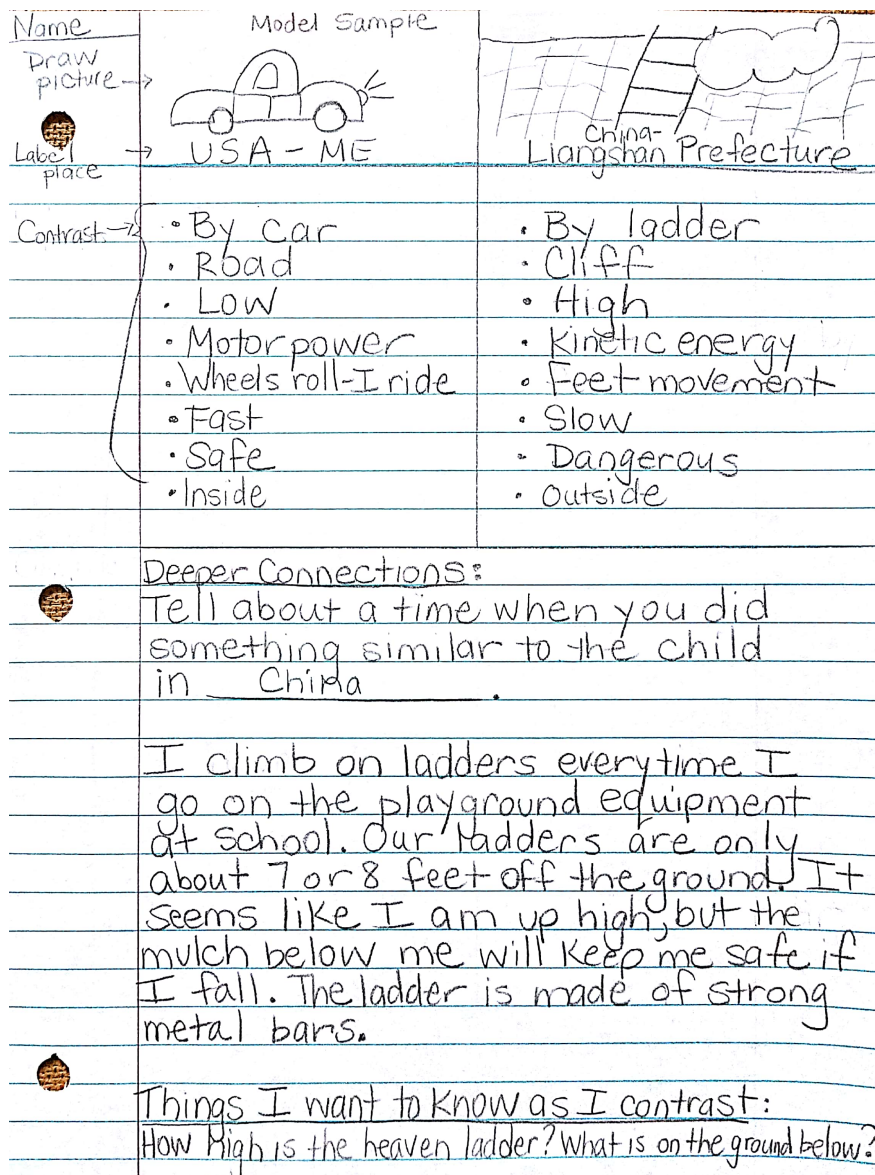 Name
Model Sample
Draw
picture →
Label
place →
USA - ME
China-
Liangshan Prefecture
Contrast →
• By car
• Road
• Low
• Motor power
• Wheels roll-I ride
• Fast
• Safe
• Inside
• By ladder
• Cliff
• High
• Kinetic energy
• Feet movement
• Slow
• Dangerous
• Outside
Deeper Connections:
Tell about a time when you did
something similar to the child
in China.
I climb on ladders everytime I
go on the playground equipment
at school. Our ladders are only
about 7 or 8 feet off the ground. It
seems like I am up high, but the
mulch below me will keep me safe if
I fall. The ladder is made of strong
metal bars.
Things I want to know as I contrast:
How high is the heaven ladder? What is on the ground below?